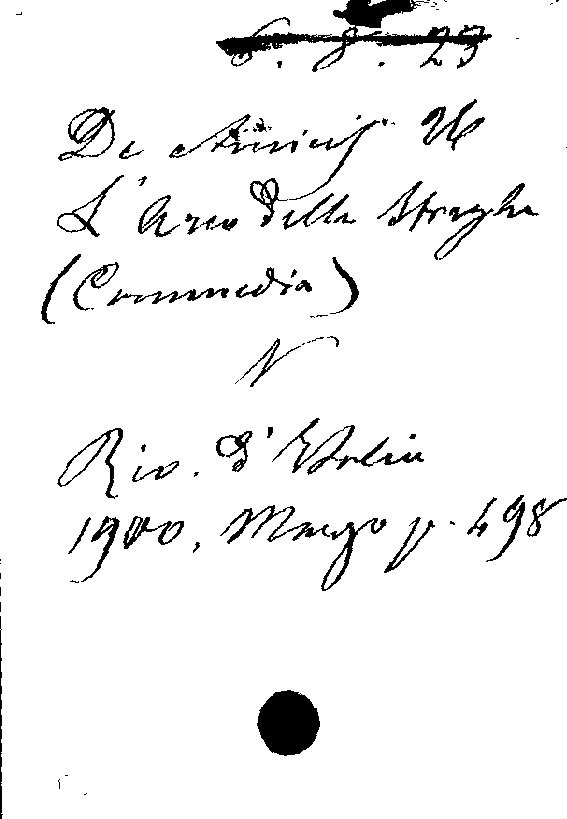 6. 8. 23
De Amicis
L'Arco delle Streghe
(Commedia)
N
Riv. d'Italia
1900, Marzo p. 498